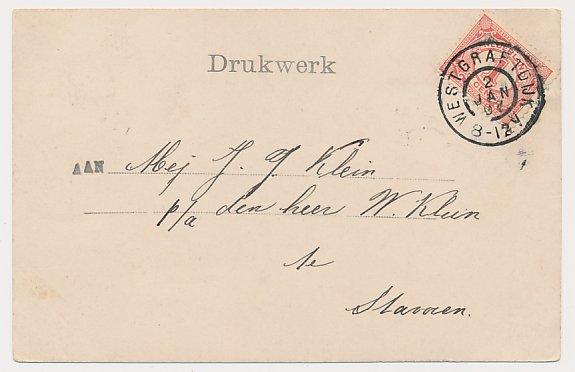 Drukwerk
WESTGRAFTDIJK
2
JAN
8-12V
AAN Mej J. J. Klein
p/a den heer W. Klein
te
Stavoren.